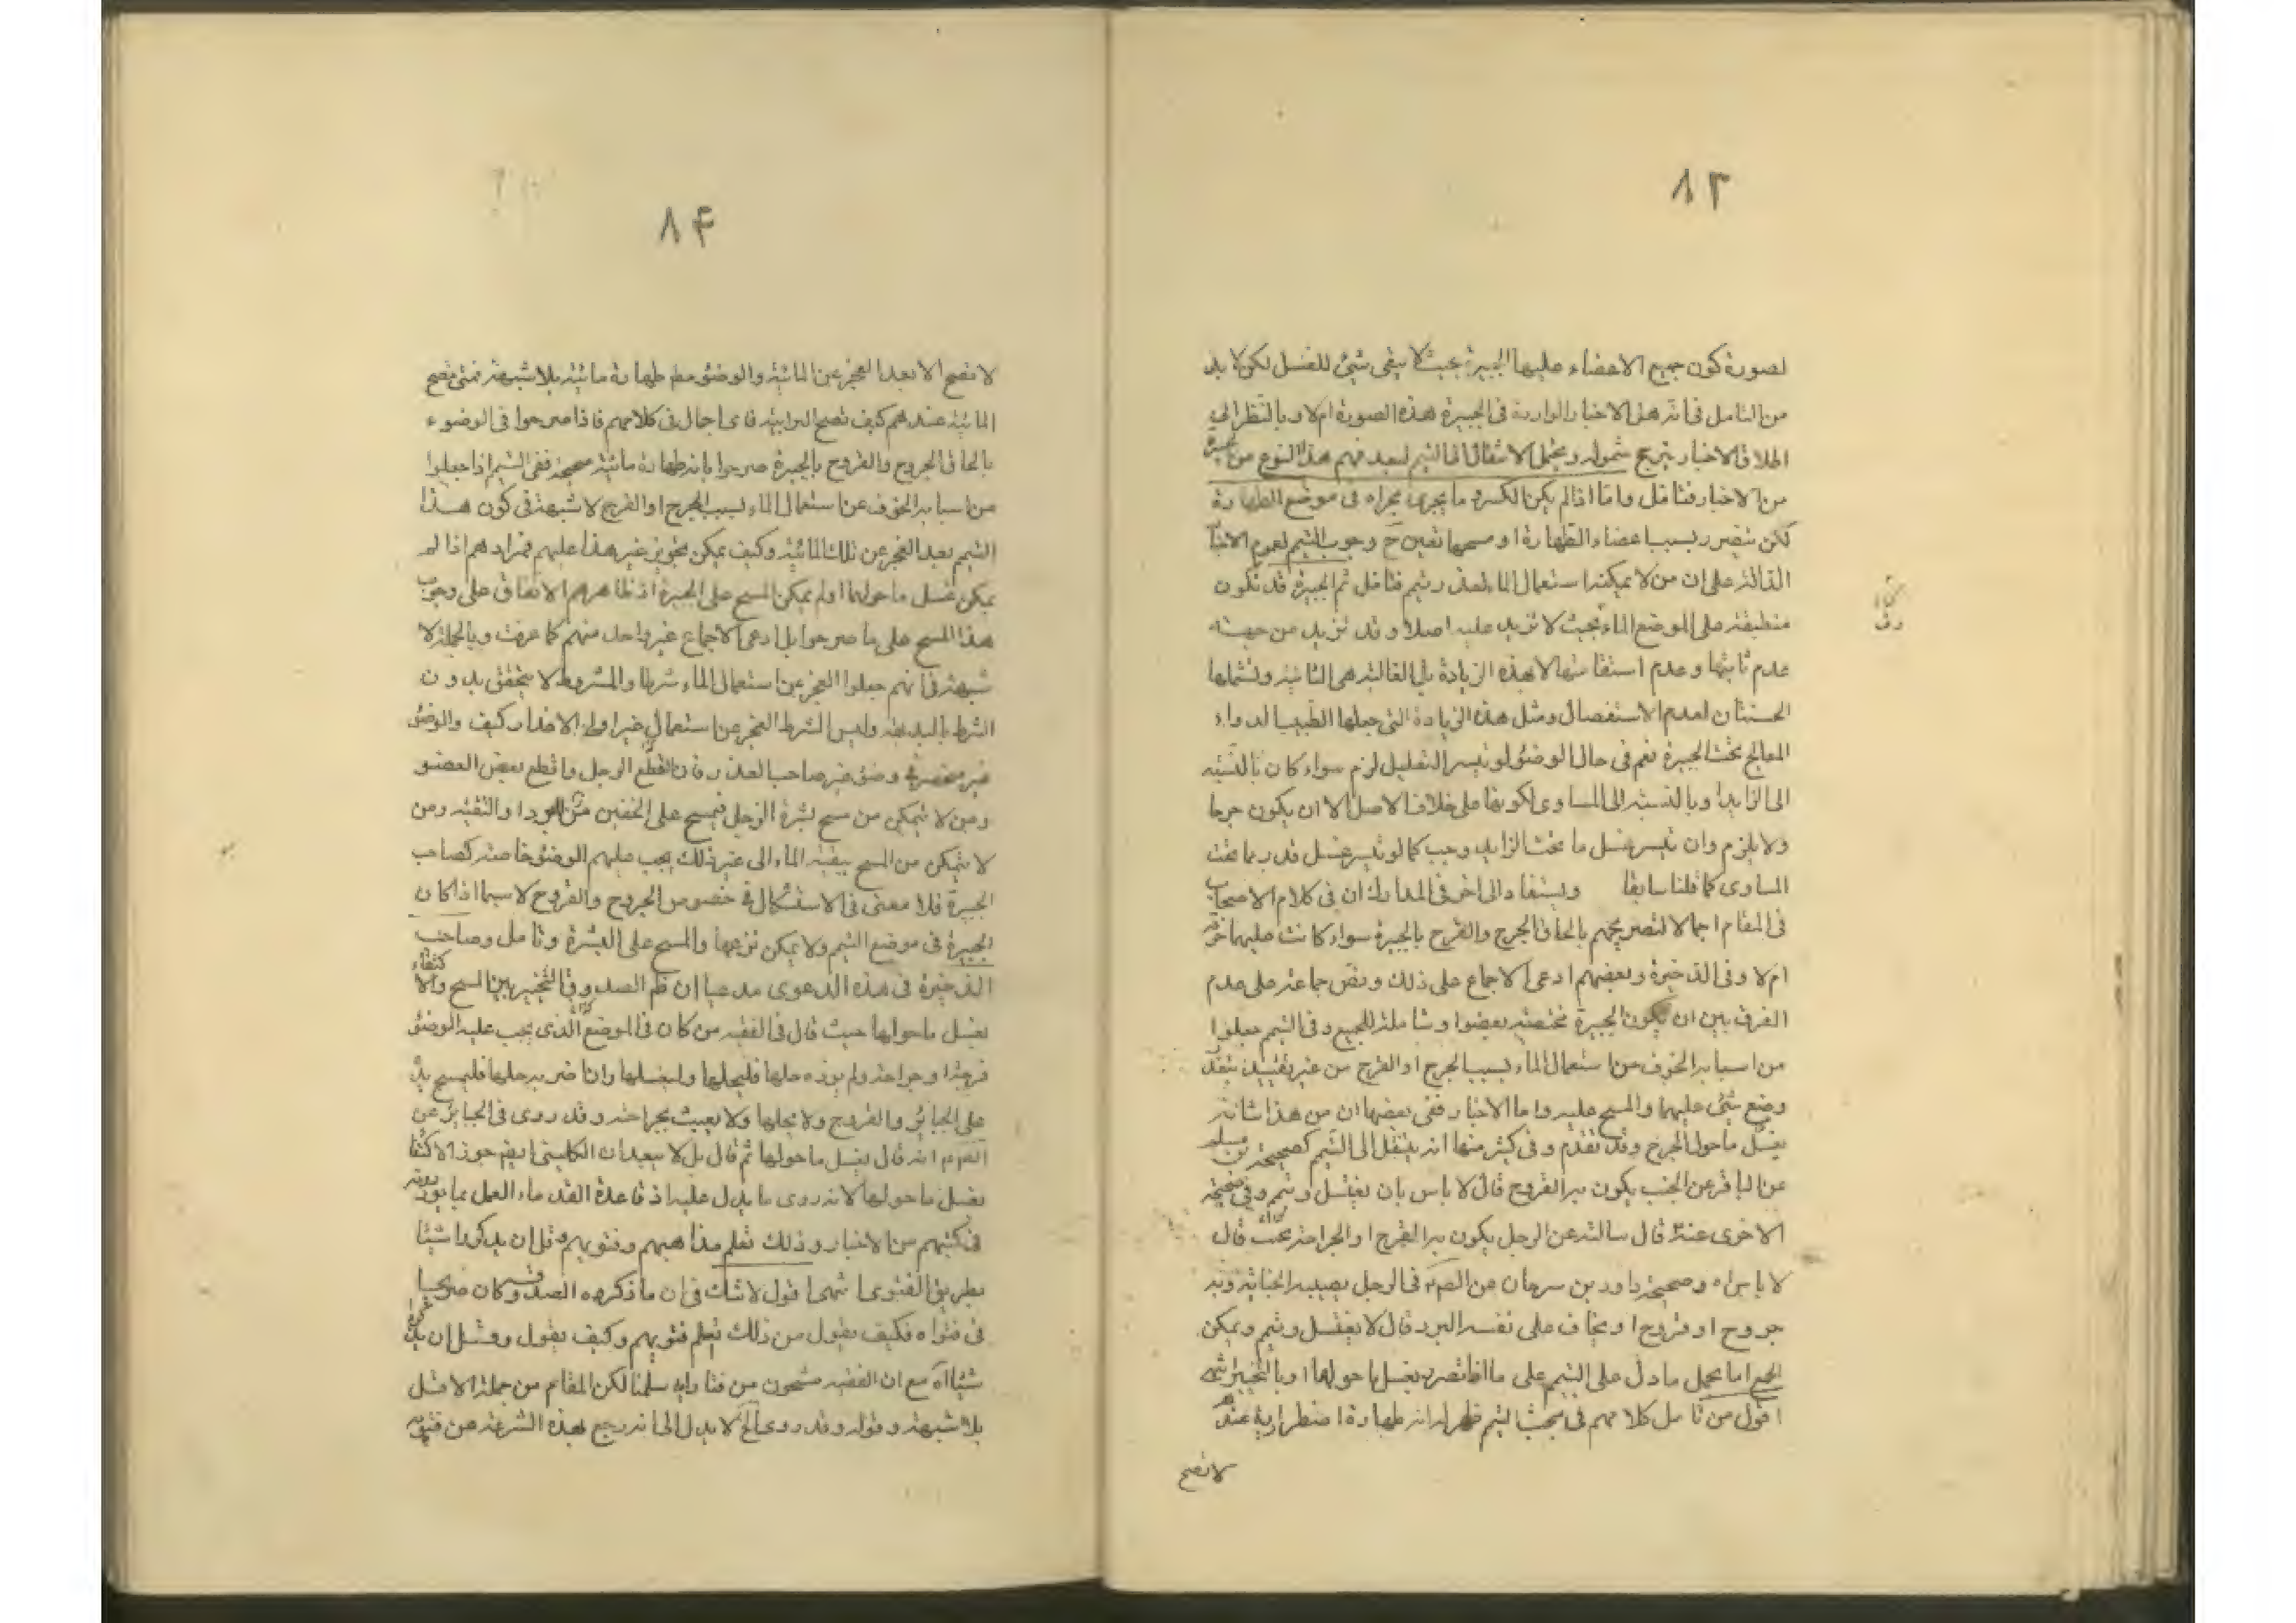 ٨٣
لصورة كون جميع الاعضاء عليها الجبيرة بحيث لا يبقى شيئ للغسل لكن لا بد
من التامل في انه هل الاخبار الواردة في الجبيرة هذه الصورة ام لا و بالنظر الى
اطلاق الاخبار يترجح شموله ويحتمل الانتقال الى التيمم لبعد فهم هذا النوع من الجبيرة
من الاخبار فتامل واما اذا لم يكن الكسر و ما يجرى مجراه في موضع الطهارة
لكن يتضرر بسبب اعضاء الطهارة او مسحها تعين ح وجوب التيمم لعموم الاخبار
الدالة على ان من لا يمكنه استعمال الماء لعذر يتيمم فتامل ثم الجبيرة قد تكون
منطبقة على الموضع الماء بحيث لا تزيد عليه اصلا و قد تزيد من جهة
عدم تاتيها وعدم استقامتها الا بهذه الزيادة بل الغالبة هى الثانية ولشملها
الحسنتان لعدم الاستفصال ومثل هذه الزيادة التي جعلها الطبيب لدواء
المعالج تحت الجبيرة نعم في حال الوضوء لو تيسر التقليل لزم سواء كان بالنسبة
الى الزايد او بالنسبة الى المساوى لكونها على خلاف الاصل الا ان يكون حرجا
ولا يلزم وان تيسر غسل ما تحت الزايد وجب كما لو تيسر غسل قدر بما تحت
المساوى كما قلنا سابقا ويستفاد الى اخر في المدارك ان في كلام الاصحاب
في المقام اجمالا لتصريحهم بالحاق الجرح والقرح بالجبيرة سواء كانت عليهما خرقة
ام لا وفي الذخيرة وبعضهم ادعى الاجماع على ذلك ونص جماعة على عدم
الفرق بين ان يكون الجبيرة مختصة بعضو او شاملة للجميع و في التيمم جعلوا
من اسبابه الخوف من استعمال الماء بسبب الجرح او القرح من غير تقييد بتعذر
وضع شئ عليهما والمسح عليه واما الاخبار ففي بعضها ان من هذا شانه
يغسل ما حول الجرح وقد تقدم و في كثير منها انه ينتقل الى التيمم كصحيحة بن مسلم
عن الباقر عن الجنب يكون به القروح قال لا باس بان لا يغتسل ويتيمم وفي صحيحة
الاخرى عنه قال سالته عن الرجل يكون به القرح او الجراحة يجنب قال
لا باس اه وصحيحة داود بن سرحان عن الصم في الرجل يصيبه الجنابة وبه
جروح او قروح او يخاف على نفسه البرد قال لا يغتسل ويتيمم ويمكن
الجمع اما بحمل ما دل على التيمم على ما اذا تضرر بغسل ما حولها او بالتخيير انتهى
اقول من تامل كلامهم في مبحث التيمم ظهر له انه طهارة اضطرارية عندهم
لا تصح
٨۴
لا تصح الا بعد العجز عن المائية والوضوء مط طهارة مائية بلا شبهة فمتى تصح
المائية عندهم كيف تصح الترابية فاى اجمال في كلامهم فاذا صرحوا في الوضوء
بالحاق الجروح والقروح بالجبيرة صرحوا بانه طهارة مائية صحيحة ففي التيمم اذا جعلوا
من اسبابه الخوف عن استعمال الماء بسبب الجرح او القرح لا شبهة في كون هذا
التيمم بعد العجز عن تلك المائية وكيف يمكن تجويز غير هذا عليهم فمرادهم اذا لم
يمكن غسل ما حولهما او لم يمكن المسح على الجبيرة اذ ظاهرهم الاتفاق على وجوب
هذا المسح على ما صرحوا بل ادعى الاجماع غير واحد منهم كما عرفت وبالجملة لا
شبهة في انهم جعلوا العجز عن استعمال الماء شرطا والمشروط لا يتحقق بدون
الشرط بالبديهة وليس الشرط العجز عن استعمال غير اولى الاعذار كيف والوضوء
غير منحصر في وضوء غير صاحب العذر فان اقطع الرجل واقطع بعض العضو
ومن لا يتمكن من مسح بشرة الرجل فيمسح على الخفين من البرد او التقية ومن
لا يتمكن من المسح ببقية الماء الى غير ذلك يجب عليهم الوضوء خاصة كصاحب
الجبيرة فلا معنى في الاستشكال في خصوص الجروح والقروح لا سيما اذا كان
الجبيرة في موضع التيمم ولا يمكن نزعها والمسح على البشرة وتامل وصاحب
الذخيرة في هذه الدعوى مدعيا ان ظم الصدوق التخيير بين المسح والاكتفاء
بغسل ما حولها حيث قال في الفقيه من كان في الموضع الذي يجب عليه الوضوء
قرحة او جراحة ولم يؤذه حلها فليحلها وليغسلها وان اضر به حلها فليمسح يده
على الجبائر والقروح ولا يحلها ولا يعبث بجراحته وقد روى في الجبائر عن
الصم انه قال يغسل ما حولها ثم قال بل لا يبعد ان الكلينى ايضم جوز الاكتفاء
بغسل ما حولها لانه روى ما يدل عليه اذ قاعدة القدماء العمل بما يوردونه
في كتبهم من الاخبار و ذلك تعلم مذاهبهم وفتويهم وقل ان يذكروا شيئا
بطريق الفتوى انتهى اقول لا شك في ان ما ذكره الصدوق كان صريحا
في فتواه فكيف يقول من ذلك تعلم فتويهم وكيف يقول وقل ان يذكروا
شيئا آه مع ان الفقيه مشحون من فتاويه سلمنا لكن المقام من جملة الاقل
بلا شبهة و قوله وقد روى الخ لا يدل الى انه رجع بهذه السرعة عن فتويه